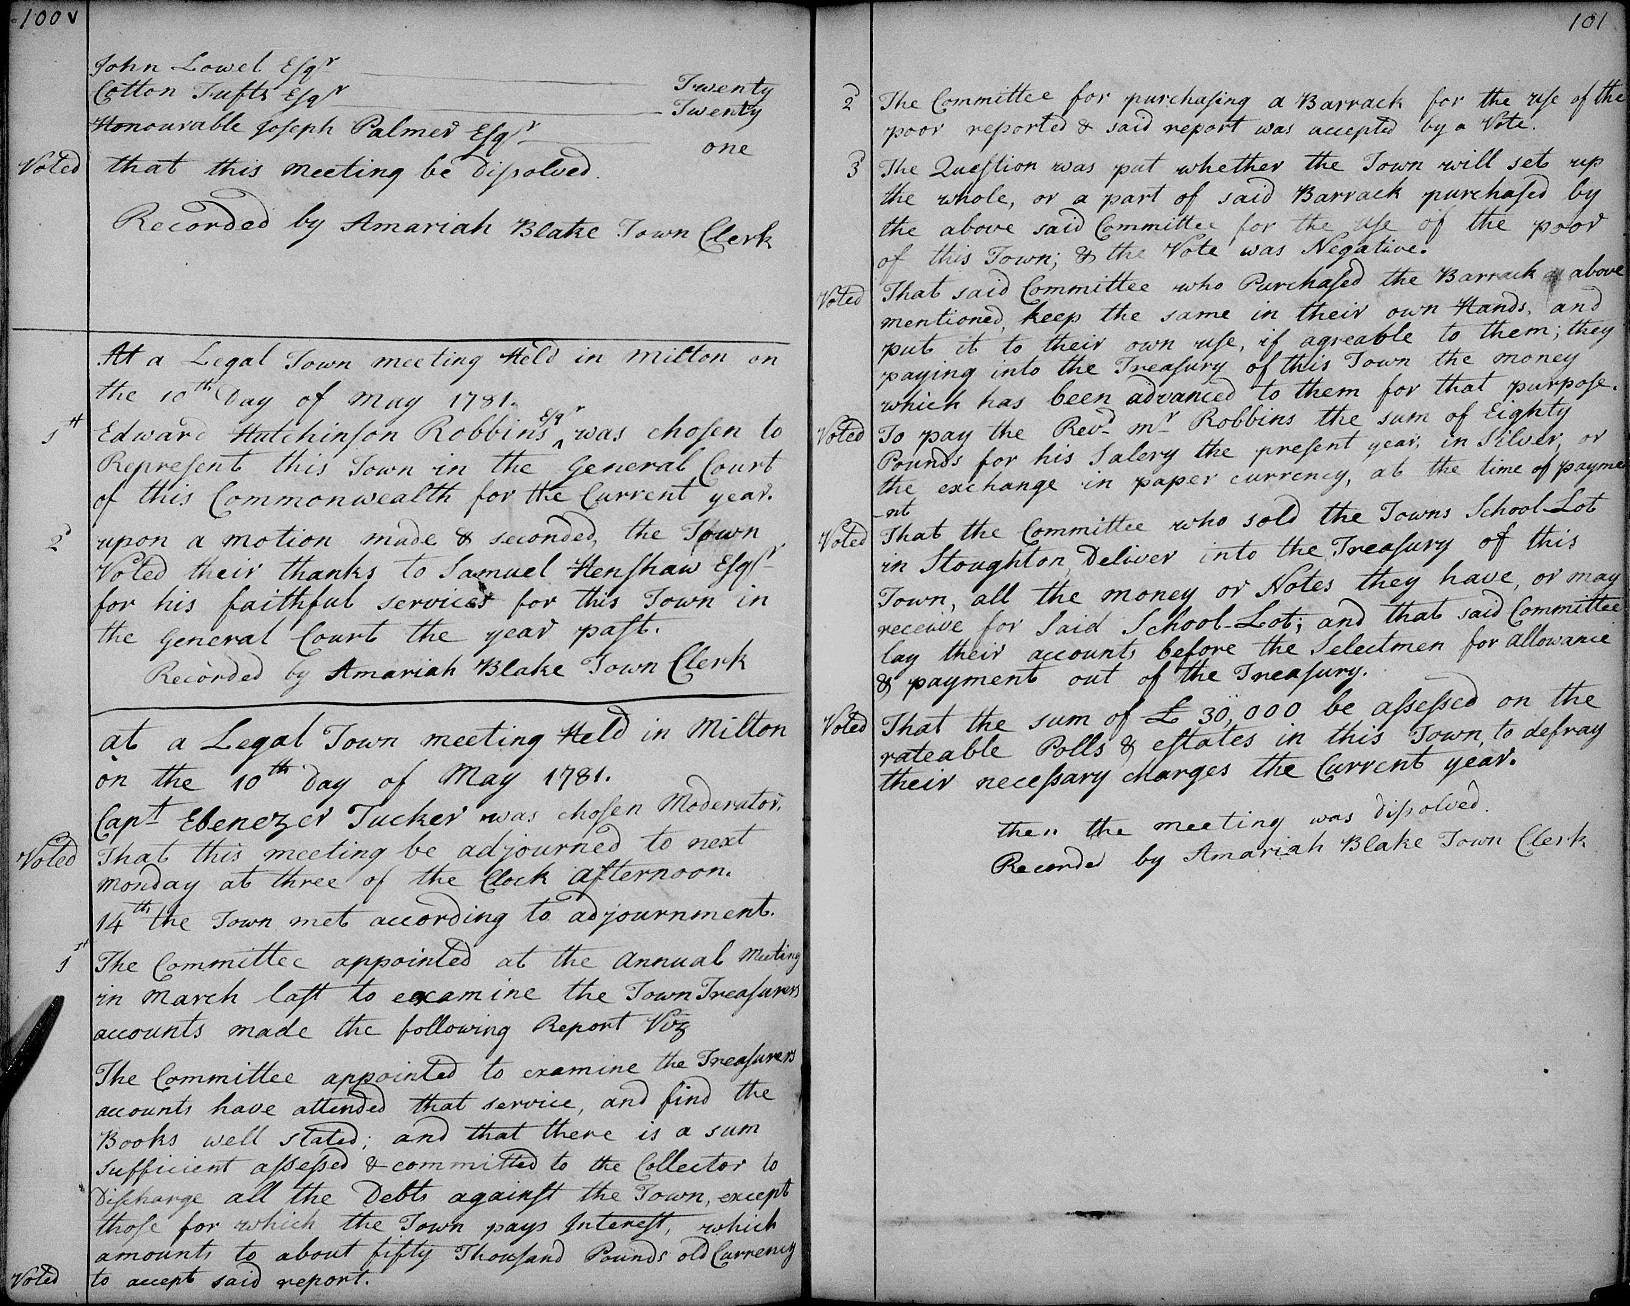 100v
John Lowel Esqr Twenty
Cotton Tufts Esqr Twenty
Honourable Joseph Palmer Esqr one
Voted that this meeting be dissolved.
Recorded by Amariah Blake Town Clerk
At a Legal Town meeting Held in Milton on
the 10th Day of May 1781.
1st Edward Hutchinson Robbins Esqr ^ was chosen to
Represent this Town in the General Court
of this Commonwealth for the Current year.
2 upon a motion made & seconded, the Town
Voted their thanks to Samuel Henshaw Esqr
for his faithful services for this Town in
the General Court the year past.
Recorded by Amariah Blake Town Clerk
at a Legal Town meeting Held in Milton
on the 10th Day of May 1781.
Capt Ebenezer Tucker was chosen Moderator.
Voted That this meeting be adjourned to next
monday at three of the Clock afternoon.
14th the Town met according to adjournment.
1st The Committee appointed at the annual Meeting
in march last to examine the Town Treasurers
accounts made the following Report Viz
The Committee appointed to examine the Treasurers
accounts have attended that service, and find the
Books well stated; and that there is a sum
sufficient assessed & committed to the Collector to
Discharge all the Debts against the Town, except
those for which the Town pays Interest, which
amounts to about fifty Thousand Pounds old Currency
Voted to accept said report.
101
2 The Committee for purchasing a Barrack for the use of the
poor reported & said report was accepted by a Vote.
3 The Question was put whether the Town will set up
the whole, or a part of said Barrack purchased by
the above said Committee for the use of the poor
of this Town; & the Vote was Negative.
Voted That said Committee who Purchased the Barrack as above
mentioned, keep the same in their own Hands, and
put it to their own use, if agreable to them; they
paying into the Treasury of this Town the money
which has been advanced to them for that purpose.
Voted To pay the Revd mr Robbins the sum of Eighty
Pounds for his Salery the present year, in Silver, or
the exchange in paper currency, at the time of payme
nt
Voted That the Committee who sold the Towns School-Lot
in Stoughton, Deliver into the Treasury of this
Town, all the money or Notes they have, or may
receive for Said School-Lot; and that said Committee
lay their accounts before the Selectmen for allowance
& payment out of the Treasury.
Voted That the sum of £ 30,000 be assessed on the
rateable Polls & estates in this Town, to defray
their necessary charges the Current year.
then the meeting was dissolved.
Recorded by Amariah Blake Town Clerk